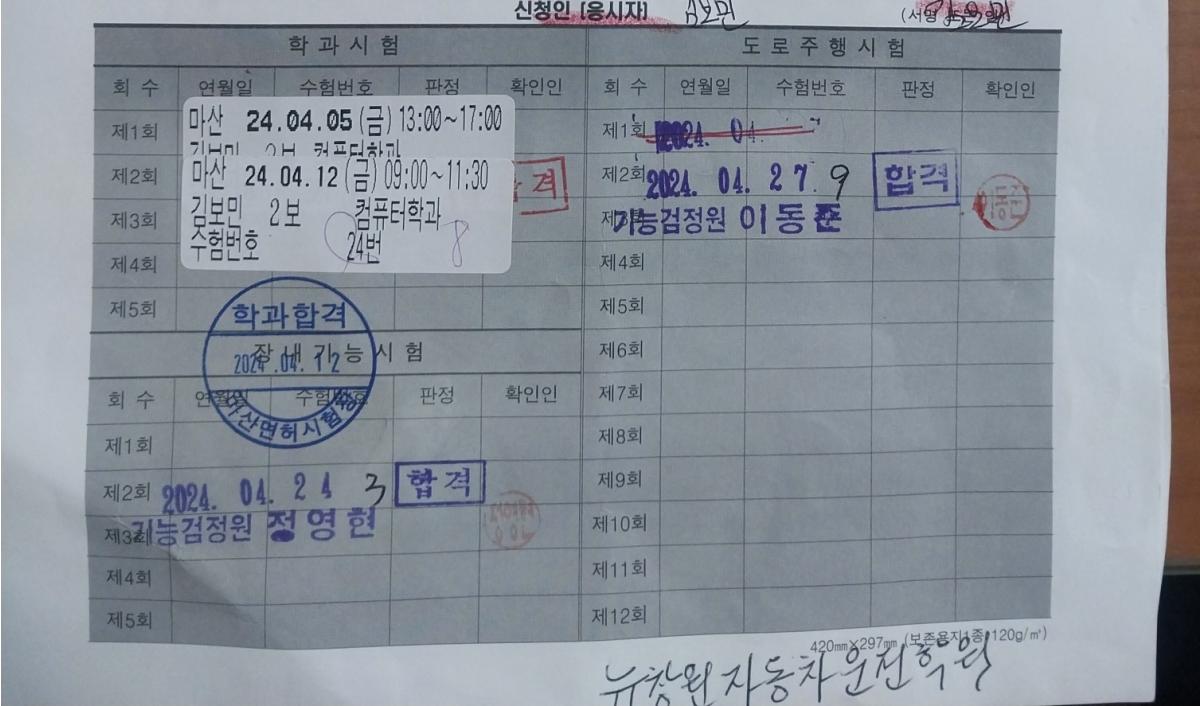 신청인 [응시자] 김보민 (서명
학 과 시 험
회 수 연월일 수험번호 판정 확인인
제1회
마산 24.04.05 (금) 13:00~17:00
김보민 2보 컴퓨터학과
제2회
마산 24.04.12 (금) 09:00~11:30
격
제3회
김보민 2보 컴퓨터학과
수험번호 24번 8
제4회
제5회
학과합격
2024.04.12
마산면허시험장
장 내 기 능 시 험
회 수 연월일 수험번호 판정 확인인
제1회
제2회 2024. 04. 2 4 3 합격
제3회 기능검정원 정영현
제4회
제5회
도 로 주 행 시 험
회 수 연월일 수험번호 판정 확인인
제1회 2024. 04.
제2회 2024. 04. 2 7. 9 합격
이동준
제3회 기능검정원 이동준
제4회
제5회
제6회
제7회
제8회
제9회
제10회
제11회
제12회
420㎜×297㎜ (보존용지1종 120g/㎡)
뉴창원자동차운전학원